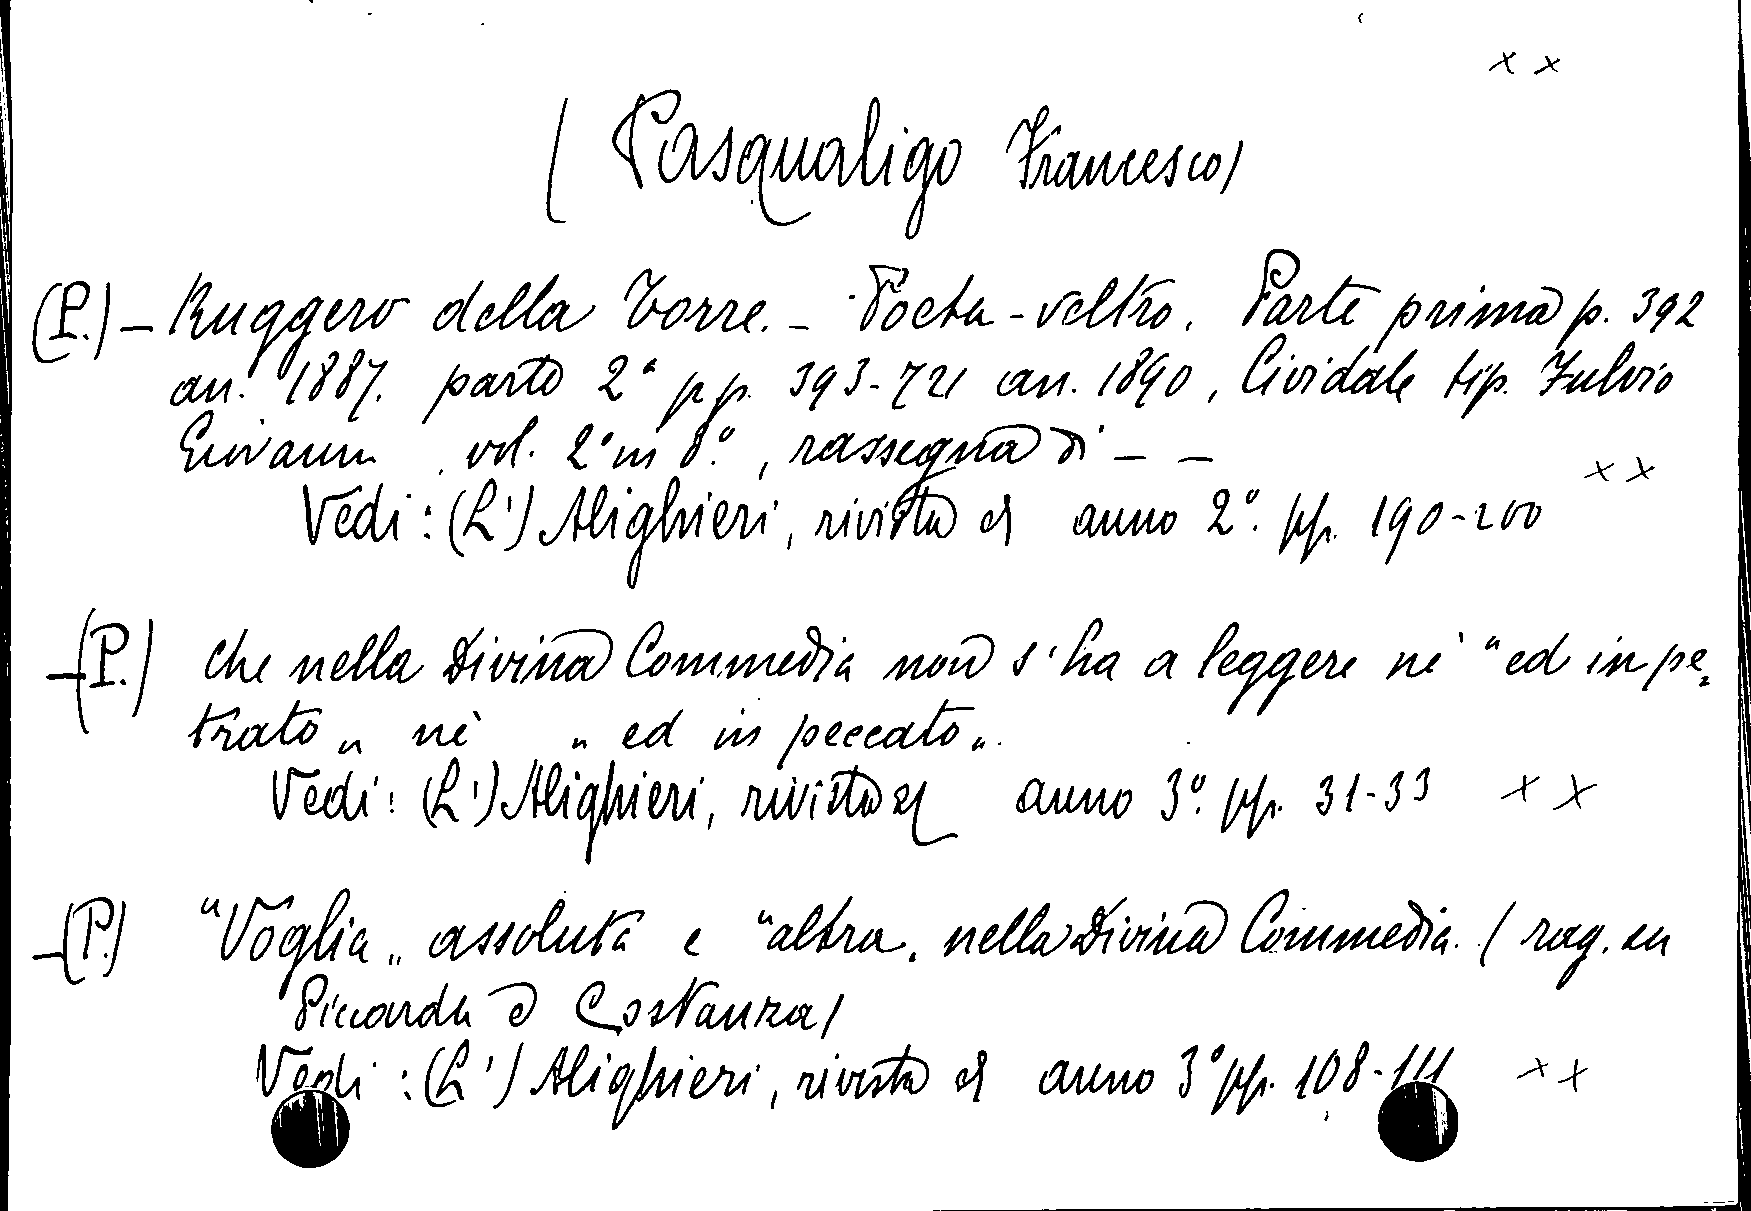 x x
( Pasqualigo Francesco)
(P.) — Ruggero della Torre. — Poeta-veltro. Parte prima p. 392
an. 1887. parte 2ª pp. 393-721 an. 1890, Cividale tip. Fulvio
Giovanni, vol. 2° in 8.°, rassegna di — —
x x
Vedi: (L') Alighieri, rivista anno 2°. pp. 190-200
—(P.) che nella Divina Commedia non s'ha a leggere nè "ed in pe-
trato„ nè „ ed in peccato„.
Vedi: (L') Alighieri, rivista anno 3°. pp. 31-33 x x
—(P.) "Voglia„ assoluta e "altra„ nella Divina Commedia. ( rag. su
Piccarda e Costanza)
Vedi: (L') Alighieri, rivista anno 3° pp. 108-111 x x